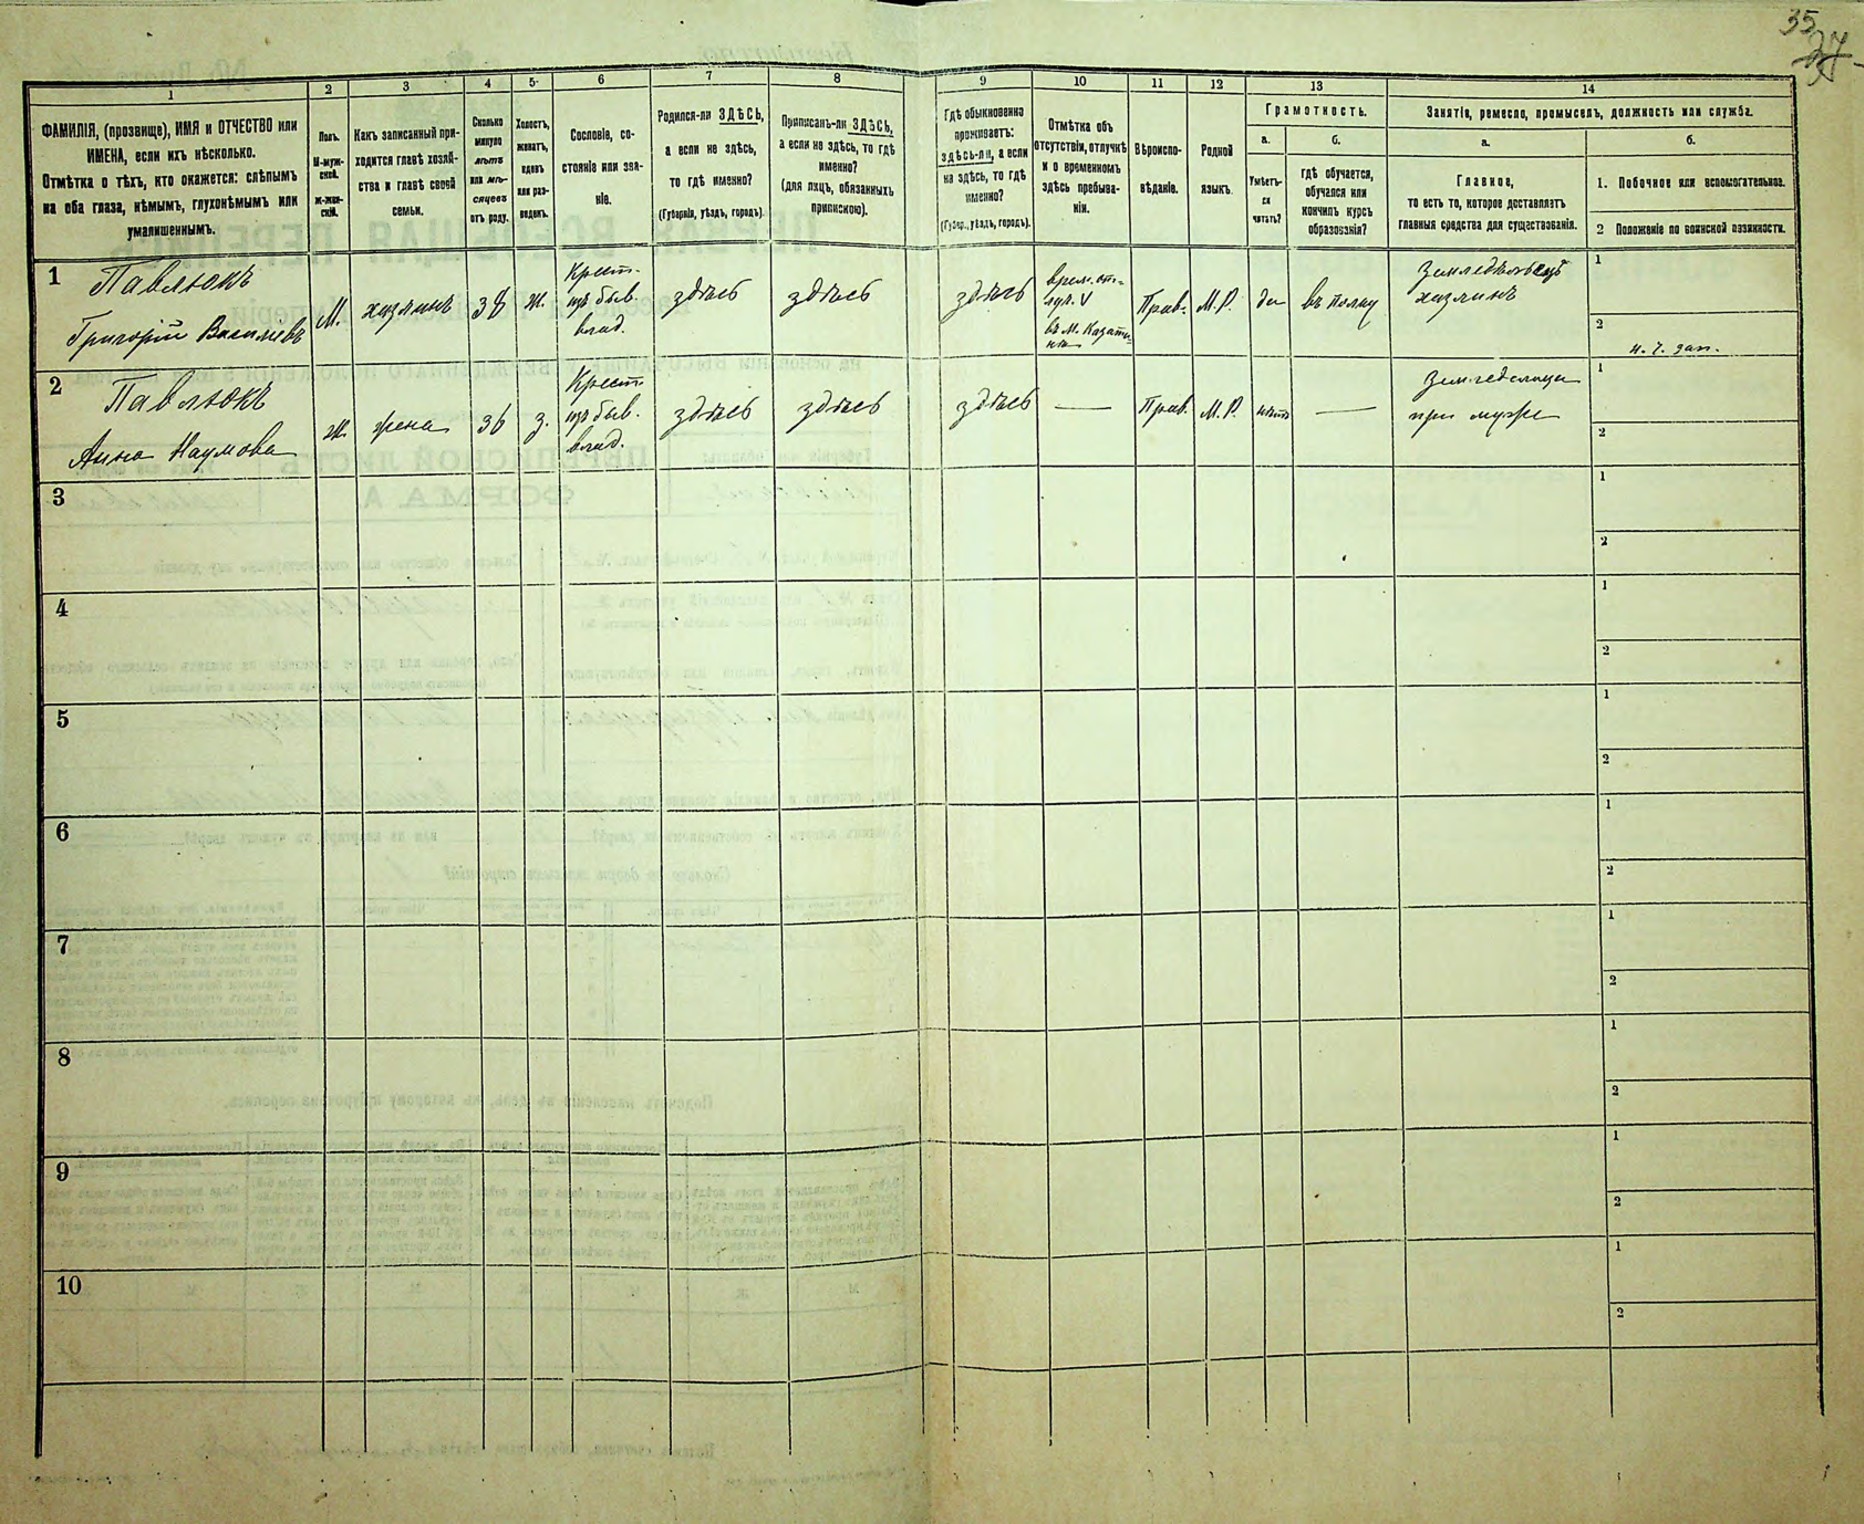 35
27
1
2
3
4
5
6
7
8
9
10
11
12
13
14
ФАМИЛІЯ, (прозвище), ИМЯ и ОТЧЕСТВО или
ИМЕНА, если ихъ нѣсколько.
Отмѣтка о тѣхъ, кто окажется: слѣпымъ
на оба глаза, нѣмымъ, глухонѣмымъ или
умалишеннымъ.
Полъ.
М-муж-
ской.
ж-жен-
скій.
Какъ записанный при-
ходится главѣ хозяй-
ства и главѣ своей
семьи.
Сколько
минуло
лѣтъ
или мѣ-
сяцевъ
отъ роду.
Холостъ,
женатъ,
вдовъ
или раз-
веденъ.
Сословіе, со-
стояніе или зва-
ніе.
Родился-ли ЗДѢСЬ,
а если не здѣсь,
то гдѣ именно?
(Губернія, уѣздъ, городъ).
Приписанъ-ли ЗДѢСЬ,
а если не здѣсь, то гдѣ
именно?
(для лицъ, обязанныхъ
припискою).
Гдѣ обыкновенно
проживаетъ:
здѣсь-ли, а если
не здѣсь, то гдѣ
именно?
(Губер., уѣздъ, городъ).
Отмѣтка объ
отсутствіи, отлучкѣ
и о временномъ
здѣсь пребыва-
ніи.
Вѣроиспо-
вѣданіе.
Родной
языкъ.
Грамотность.
а.
Умѣетъ-
ли
читать?
б.
гдѣ обучается,
обучался или
кончилъ курсъ
образованія?
Занятіе, ремесло, промыселъ, должность или служба.
а.
Главное,
то есть то, которое доставляетъ
главныя средства для существованія.
б.
1. Побочное или вспомогательное.
2 Положеніе по воинской повинности.
1
Павлюкъ
Григорій Василіевъ
М.
хазяинъ
38
ж.
Крест.
изъ быв.
влад.
здѣсь
здѣсь
здѣсь
врем. от-
V
въ м. Казати-
Прав.
М.Р.
да
въ полку
Земледѣлецъ
хазяинъ
1
2
н. ч. зап.
2
Павлюкъ
Анна Наумова
ж.
жена
36
з.
Крест.
изъ быв.
влад.
здѣсь
здѣсь
здѣсь
—
Прав.
М.Р.
нѣтъ
—
при мужѣ
1
2
3
1
2
4
1
2
5
1
2
6
1
2
7
1
2
8
1
2
9
1
2
10
1
2